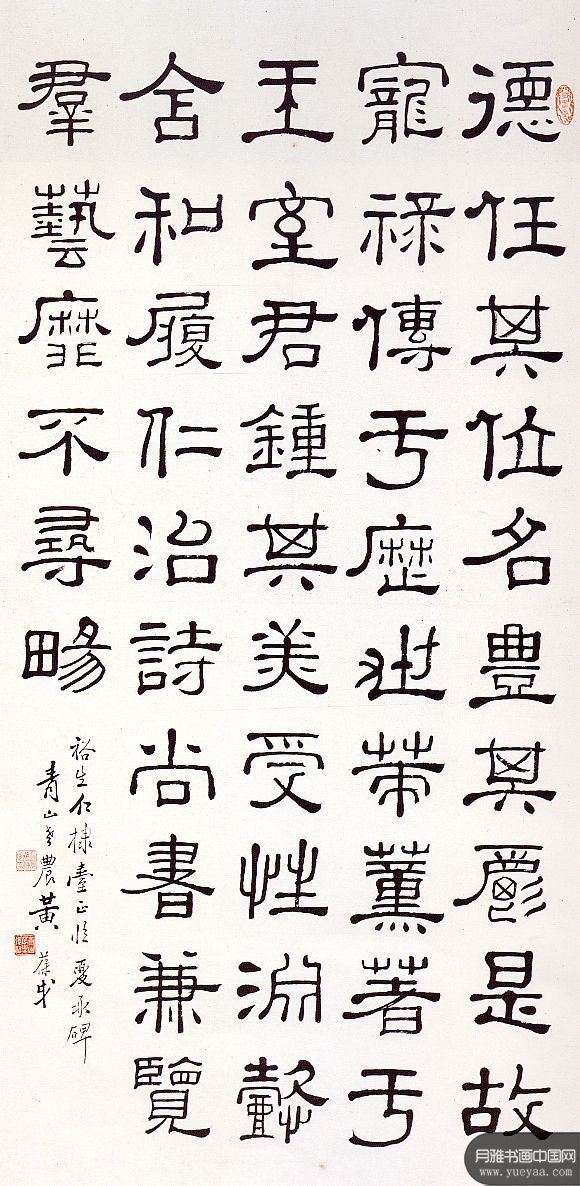 德任其位名豐其爵是故
寵祿傳于歷世策薰著于
王室君鍾其美受性淵懿
含和履仁治詩尚書兼覽
羣藝靡不尋暢
裕生仁棣臺正臨夏承碑
青山老農黃葆戉
月雅书画中国网
www.yueyaa.com